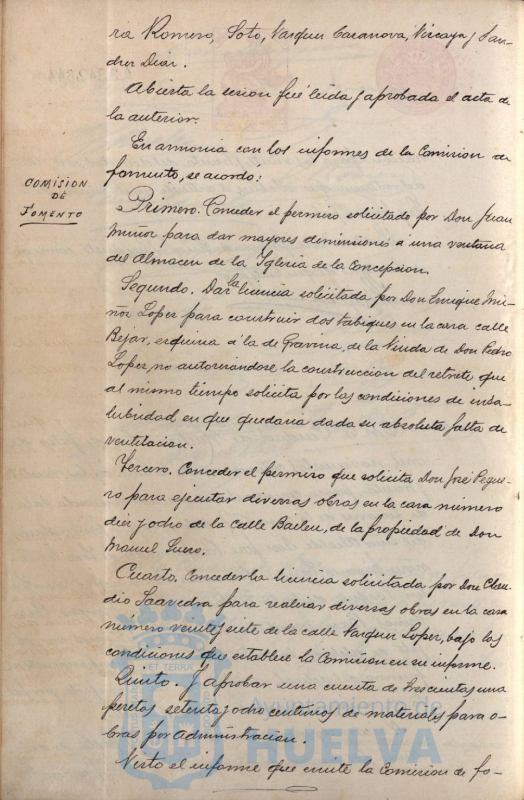 ria Romero, Soto, Vazquez Casanova, Vizcaya y San-
chez Diaz.
Abierta la sesion fué leida y aprobada el acta de
la anterior.
En armonia con los informes de la Comision de
fomento, se acordó:
COMISION
DE
FOMENTO
Primero. Conceder el permiso solicitado por Don Juan
Muñoz para dar mayores dimensiones a una ventana
del Almacen de la Iglesia de la Concepcion.
Segundo. Dar la licencia solicitada por Don Enrique Mu-
ñoz Lopez para construir dos tabiques en la casa calle
Bejar, esquina á la de Gravina, de la Viuda de Don Pedro
Lopez, no autorizandose la construccion del retrete que
al mismo tiempo solicita por las condiciones de insa-
lubridad en que quedaria dada su absoluta falta de
ventilacion.
Tercero. Conceder el permiso que solicita Don José Pegue-
ro para ejecutar diversas obras en la casa número
diez y ocho de la calle Bailen, de la propiedad de Don
Manuel Suero.
Cuarto. Conceder la licencia solicitada por Don Clau-
dio Saavedra para realizar diversas obras en la casa
número veinte y siete de la calle Vazquez Lopez, bajo las
condiciones que establece la Comision en su informe.
Quinto. Y aprobar una cuenta de trescientas una
pesetas setenta y ocho centimos de materiales para o-
bras por administracion.
Visto el informe que emite la Comision de fo-
Ayuntamiento de
HUELVA